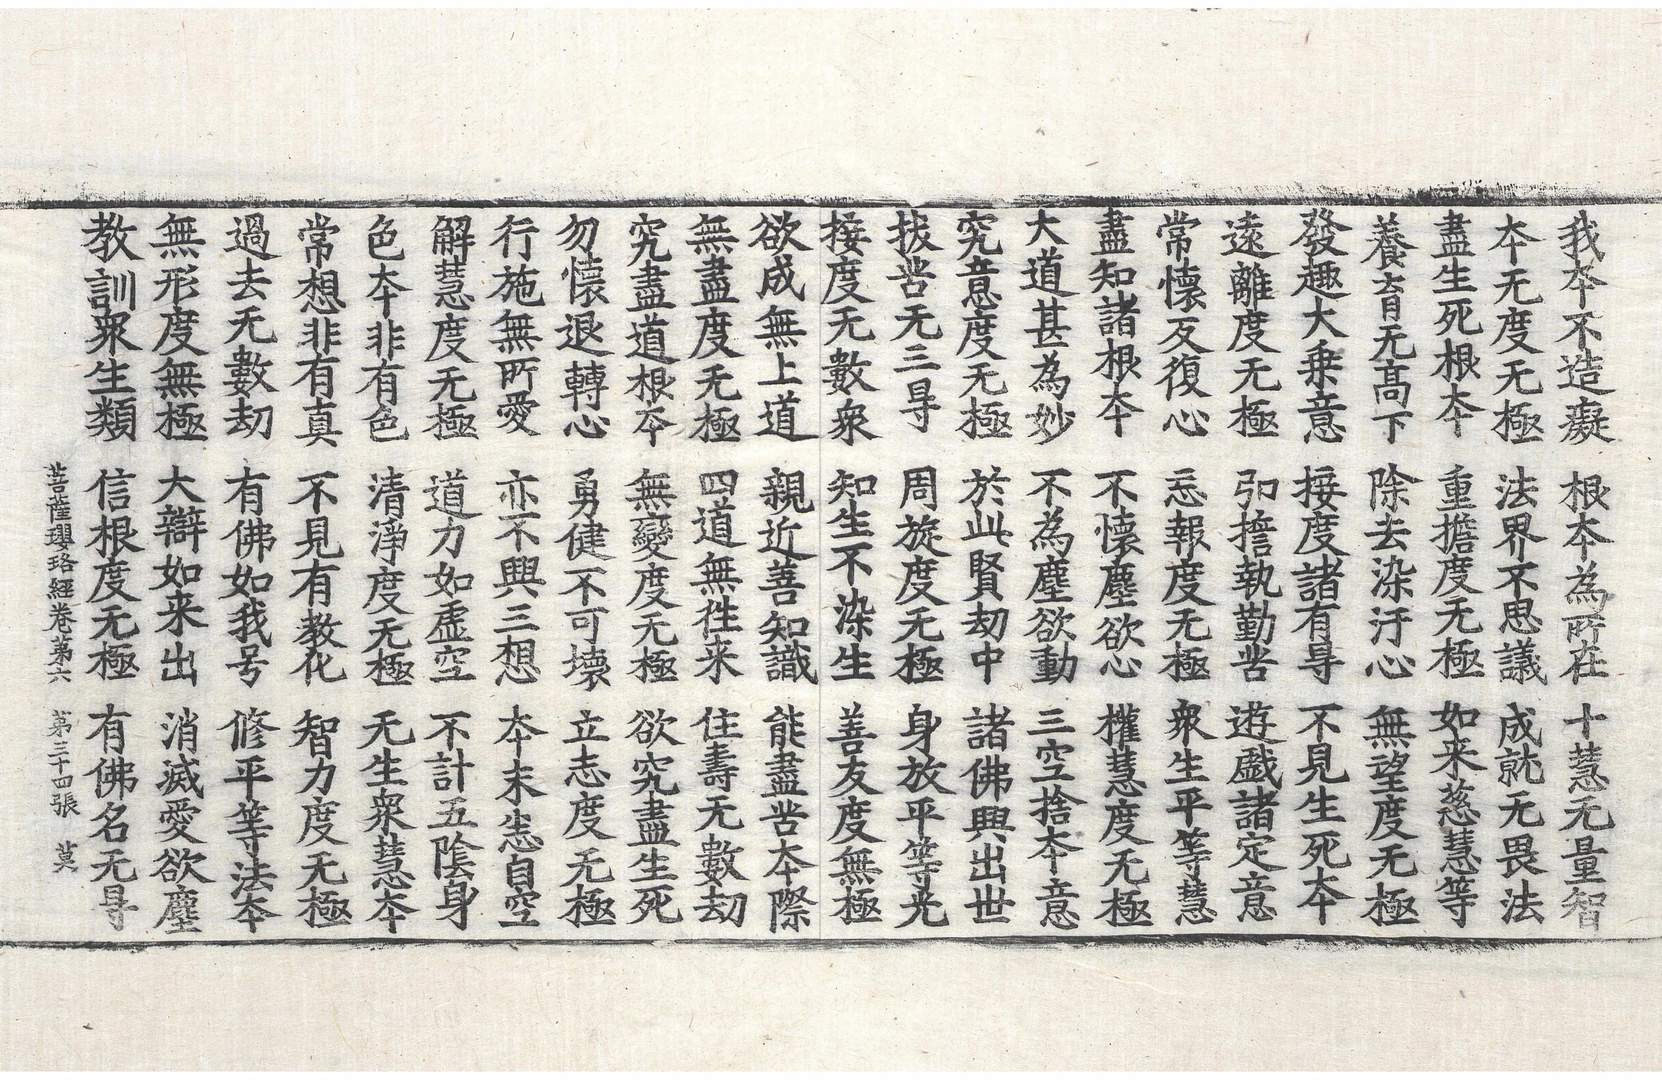 我夲不造癡 根夲為所在 十慧无量智
夲无度无極 法界不思議 成就无畏法
盡生死根夲 重擔度无極 如来慈慧等
養育无髙下 除去染汙心 無望度无極
發趣大乗意 接度諸有㝵 不見生死夲
遠離度无極 卬擔執勤苦 遊戲諸定意
常懷反復心 忘報度无極 衆生平等慧
盡知諸根夲 不懷塵欲心 權慧度无極
大道甚為妙 不為塵欲動 三空捨夲意
究意度无極 於此賢劫中 諸佛興出世
拔苦无三㝵 周旋度无極 身放平等光
接度无數衆 知生不染生 善友度無極
欲成無上道 親近善知識 能盡苦夲際
無盡度无極 四道無往来 住壽无數劫
究盡道根夲 無變度无極 欲究盡生死
勿懷退轉心 勇健不可壞 立志度无極
行施無所愛 亦不興三想 夲末悉自空
解慧度无極 道力如虚空 不計五陰身
色夲非有色 清淨度无極 无生衆慧夲
常想非有真 不見有教化 智力度无極
過去无數劫 有佛如我号 修平等法夲
無形度無極 大辯如来出 消滅愛欲塵
教訓衆生類 信根度无極 有佛名无㝵
菩薩瓔珞經卷第六 第三十四張 莫